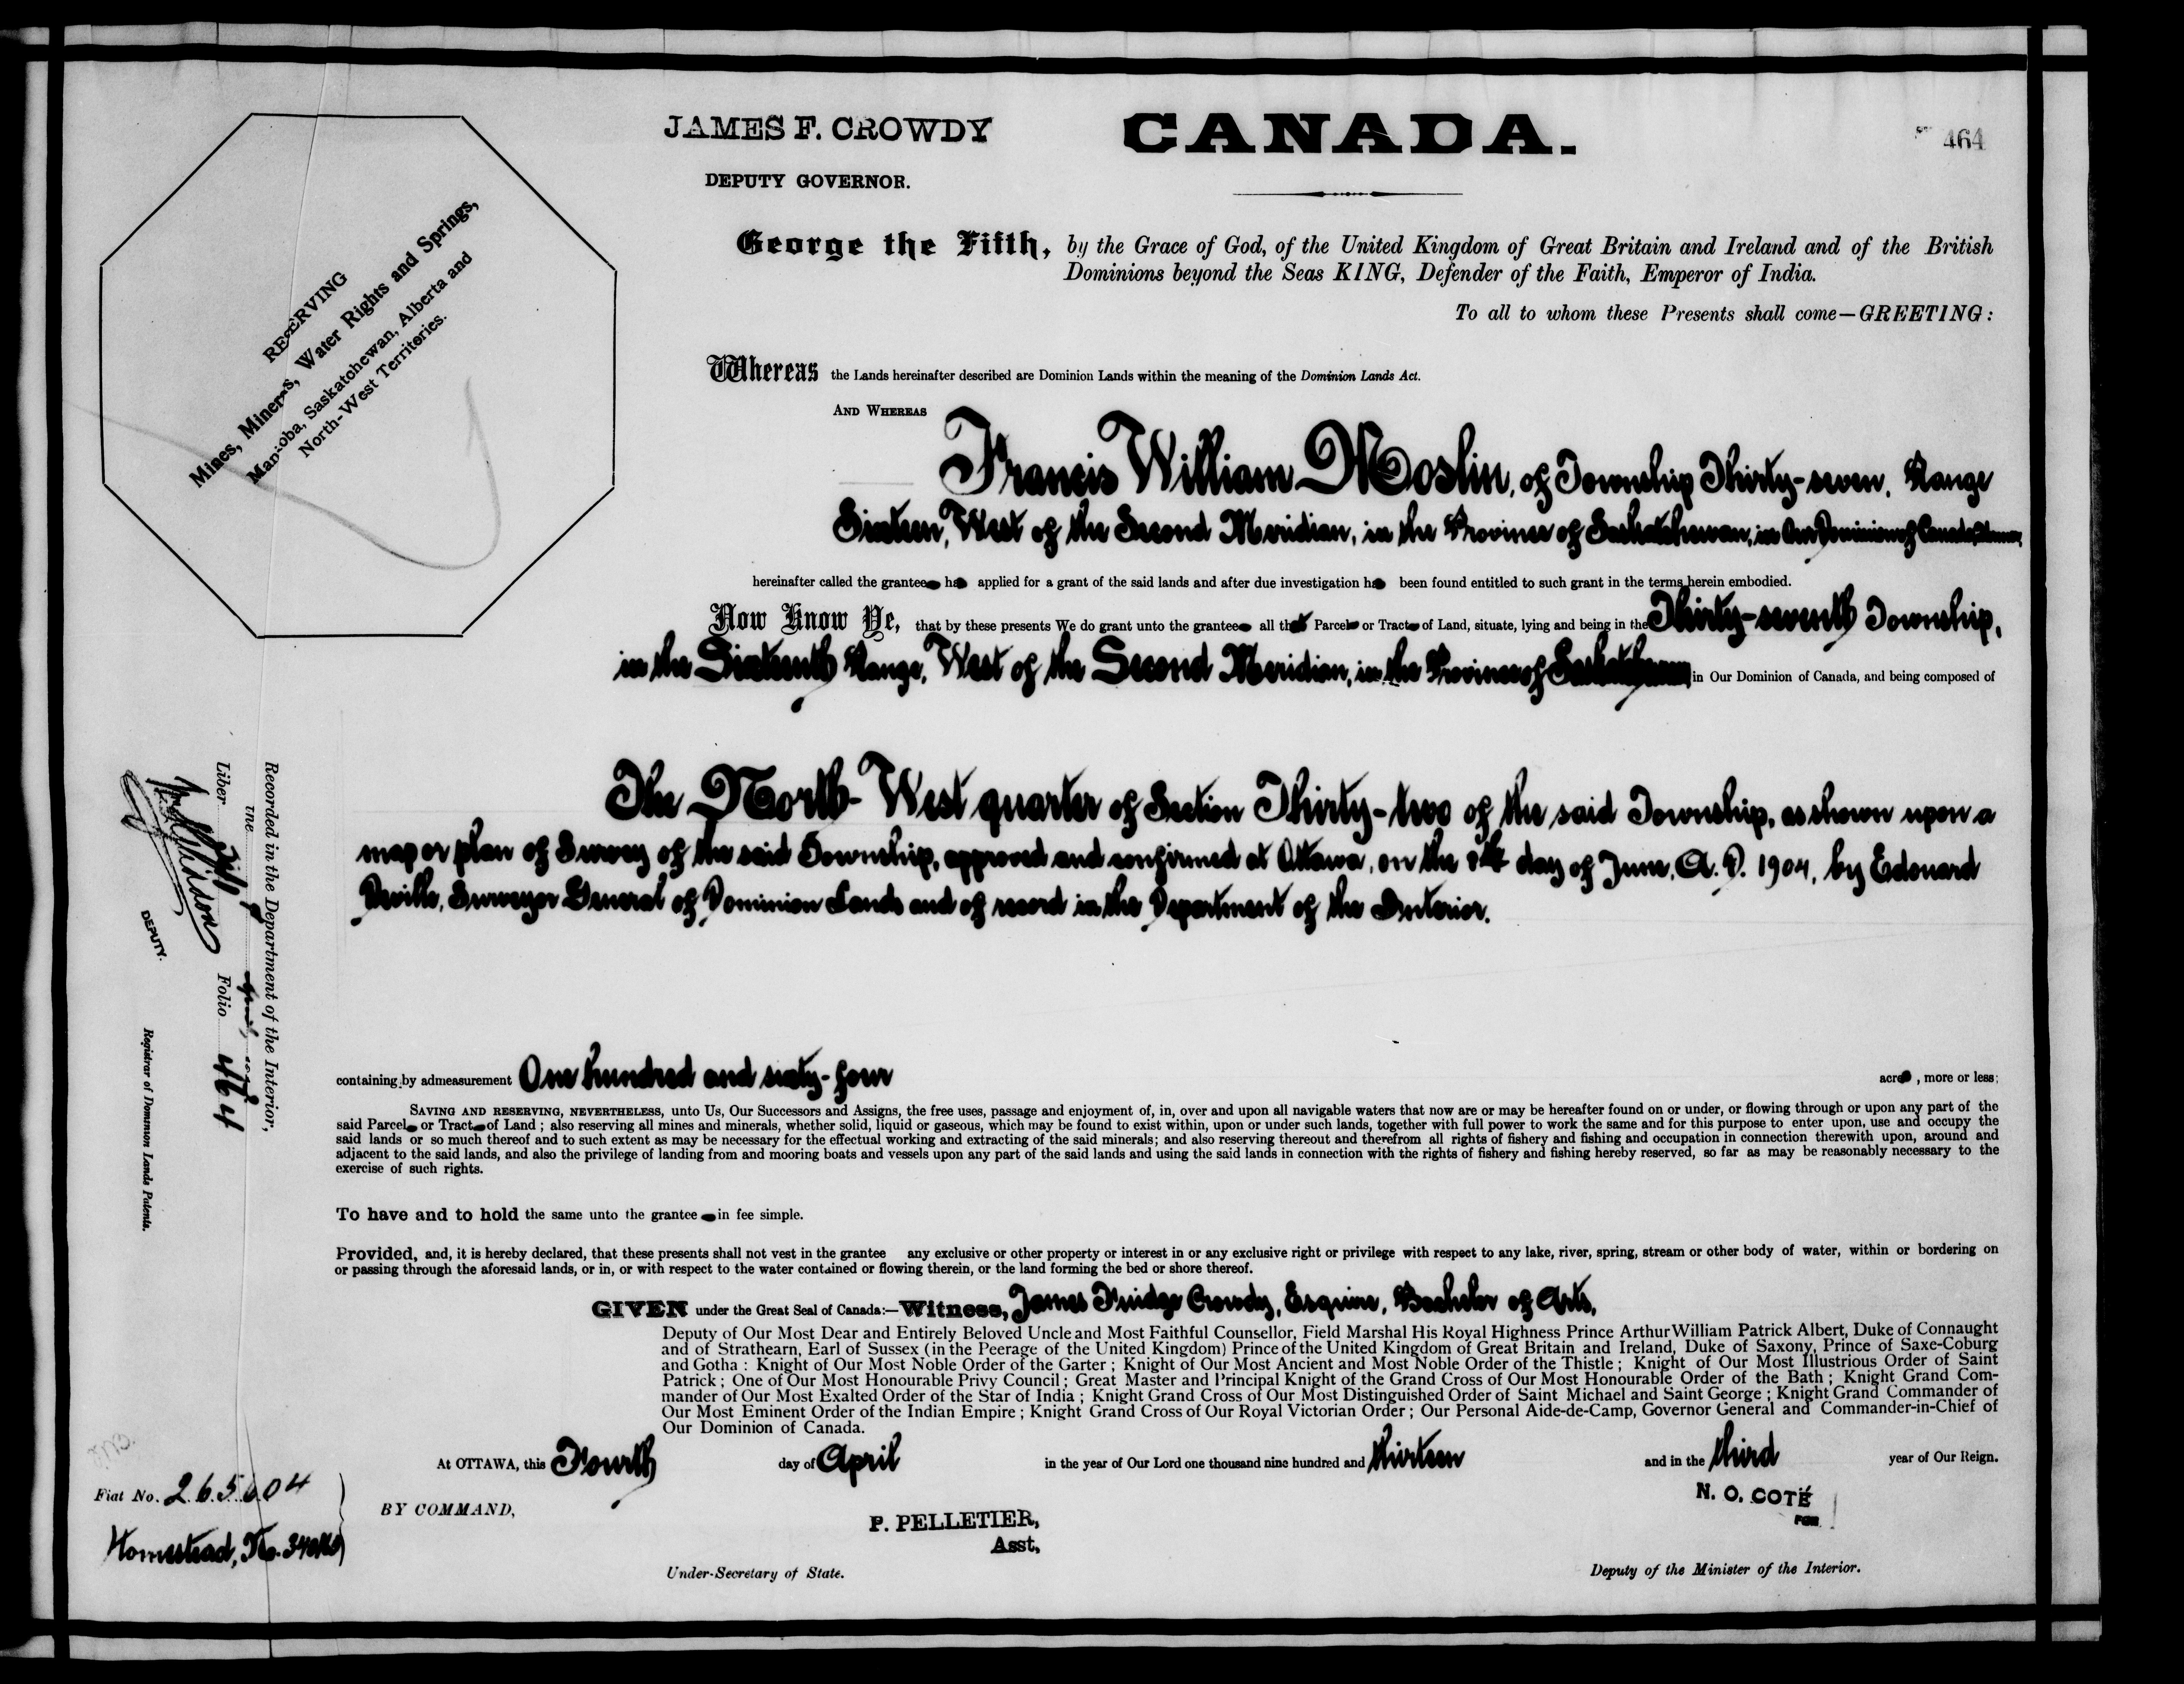 JAMES F. CROWDY
DEPUTY GOVERNOR.
CANADA.
464
RESERVING
Mines, Minerals, Water Rights and Springs,
Manitoba, Saskatchewan, Alberta and
North-West Territories.
George the Fifth, by the Grace of God, of the United Kingdom of Great Britain and Ireland and of the British
Dominions beyond the Seas KING, Defender of the Faith, Emperor of India.
To all to whom these Presents shall come—GREETING:
Whereas the Lands hereinafter described are Dominion Lands within the meaning of the Dominion Lands Act.
AND WHEREAS
Francis William Moslin, of Township Thirty-seven, Range
Sixteen, West of the Second Meridian, in the Province of Saskatchewan, in Our Dominion of Canada,
hereinafter called the grantee has applied for a grant of the said lands and after due investigation has been found entitled to such grant in the terms herein embodied.
Now Know Ye, that by these presents We do grant unto the grantee all that Parcel or Tract of Land, situate, lying and being in the Thirty-seventh Township,
in the Sixteenth Range, West of the Second Meridian, in the Province of Saskatchewan in Our Dominion of Canada, and being composed of
The North-West quarter of Section Thirty-two of the said Township, as shown upon a
map or plan of Survey of the said Township, approved and confirmed at Ottawa, on the 8th day of June, A.D. 1904, by Edouard
Deville, Surveyor General of Dominion Lands and of record in the Department of the Interior.
containing by admeasurement One hundred and sixty-four acres, more or less;
SAVING AND RESERVING, NEVERTHELESS, unto Us, Our Successors and Assigns, the free uses, passage and enjoyment of, in, over and upon all navigable waters that now are or may be hereafter found on or under, or flowing through or upon any part of the
said Parcel or Tract of Land; also reserving all mines and minerals, whether solid, liquid or gaseous, which may be found to exist within, upon or under such lands, together with full power to work the same and for this purpose to enter upon, use and occupy the
said lands or so much thereof and to such extent as may be necessary for the effectual working and extracting of the said minerals; and also reserving thereout and therefrom all rights of fishery and fishing and occupation in connection therewith upon, around and
adjacent to the said lands, and also the privilege of landing from and mooring boats and vessels upon any part of the said lands and using the said lands in connection with the rights of fishery and fishing hereby reserved, so far as may be reasonably necessary to the
exercise of such rights.
To have and to hold the same unto the grantee in fee simple.
Provided, and, it is hereby declared, that these presents shall not vest in the grantee any exclusive or other property or interest in or any exclusive right or privilege with respect to any lake, river, spring, stream or other body of water, within or bordering on
or passing through the aforesaid lands, or in, or with respect to the water contained or flowing therein, or the land forming the bed or shore thereof.
GIVEN under the Great Seal of Canada:—Witness, James Fuidge Crowdy, Esquire, Bachelor of Arts,
Deputy of Our Most Dear and Entirely Beloved Uncle and Most Faithful Counsellor, Field Marshal His Royal Highness Prince Arthur William Patrick Albert, Duke of Connaught
and of Strathearn, Earl of Sussex (in the Peerage of the United Kingdom) Prince of the United Kingdom of Great Britain and Ireland, Duke of Saxony, Prince of Saxe-Coburg
and Gotha: Knight of Our Most Noble Order of the Garter; Knight of Our Most Ancient and Most Noble Order of the Thistle; Knight of Our Most Illustrious Order of Saint
Patrick; One of Our Most Honourable Privy Council; Great Master and Principal Knight of the Grand Cross of Our Most Honourable Order of the Bath; Knight Grand Com-
mander of Our Most Exalted Order of the Star of India; Knight Grand Cross of Our Most Distinguished Order of Saint Michael and Saint George; Knight Grand Commander of
Our Most Eminent Order of the Indian Empire; Knight Grand Cross of Our Royal Victorian Order; Our Personal Aide-de-Camp, Governor General and Commander-in-Chief of
Our Dominion of Canada.
At OTTAWA, this Fourth day of April in the year of Our Lord one thousand nine hundred and thirteen and in the third year of Our Reign.
BY COMMAND,
P. PELLETIER,
Asst,
Under-Secretary of State.
N. O. COTÉ
FOR
Deputy of the Minister of the Interior.
Fiat No. 265604
Homestead,
Recorded in the Department of the Interior,
the
Liber Folio 464
DEPUTY.
Registrar of Dominion Lands Patents.